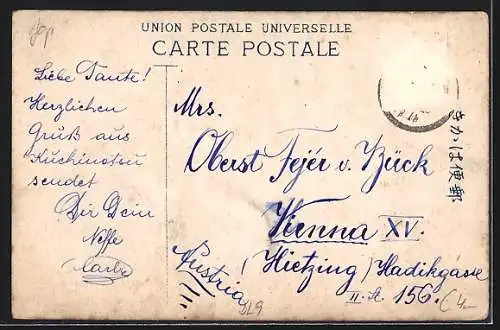 Jap
UNION POSTALE UNIVERSELLE
CARTE POSTALE
Liebe Tante!
Herzlichen
Gruß aus
Kuchinotsu
sendet
Dir Dein
Neffe
Mrs.
Oberst Fejér v. Bück
Vienna XV.
(Hietzing) Hadikgasse
II. St. 156.
Austria!
529
きかは便郵